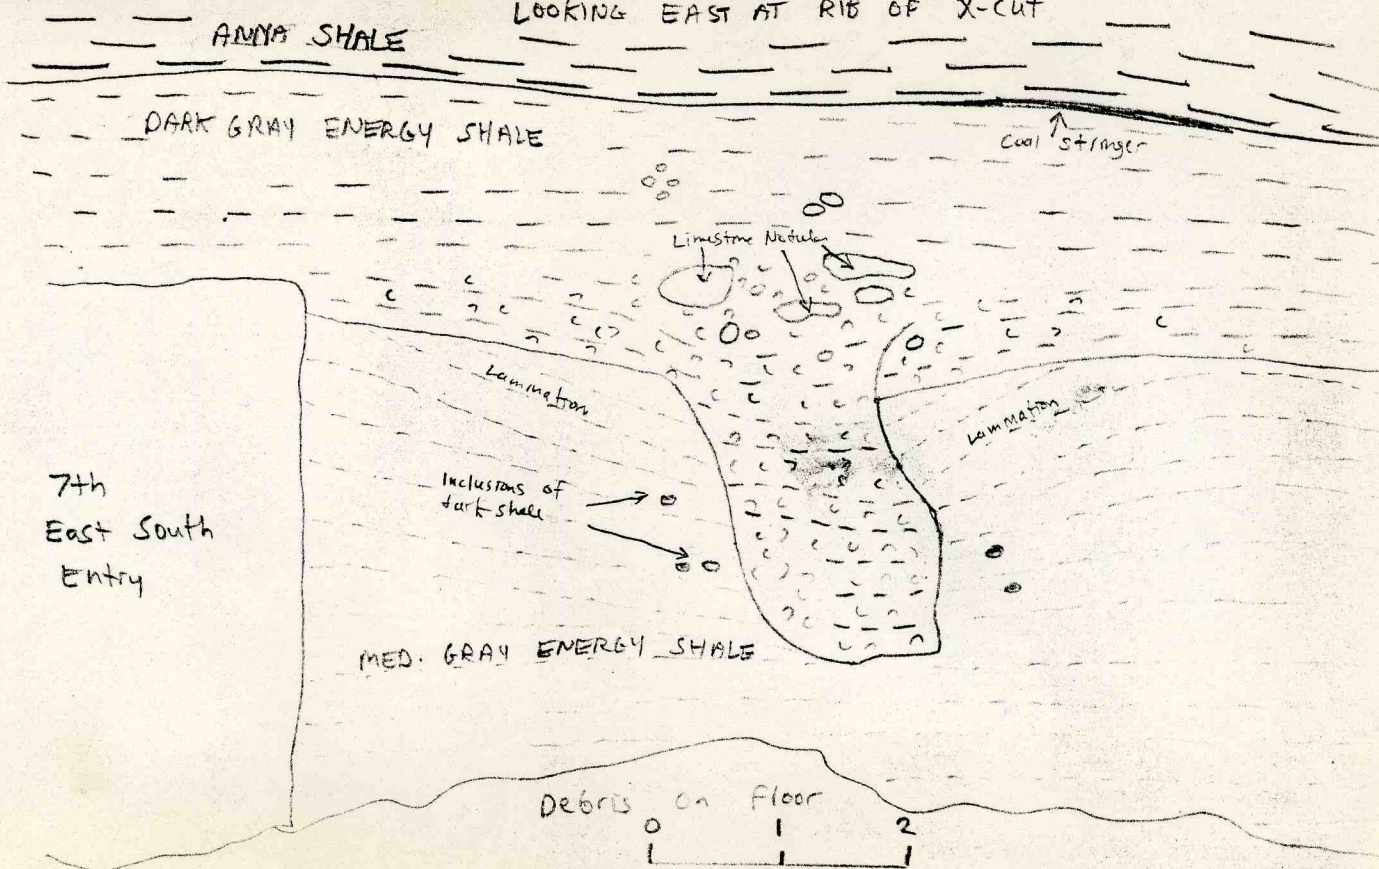 LOOKING EAST AT RIB OF X-CUT
ANNA SHALE
DARK GRAY ENERGY SHALE
Coal Stringer
Limestone Nodules
Lamination
Lammation
Inclusions of
dark shale
7th
East South
Entry
MED. GRAY ENERGY SHALE
Debris on Floor
0 1 2